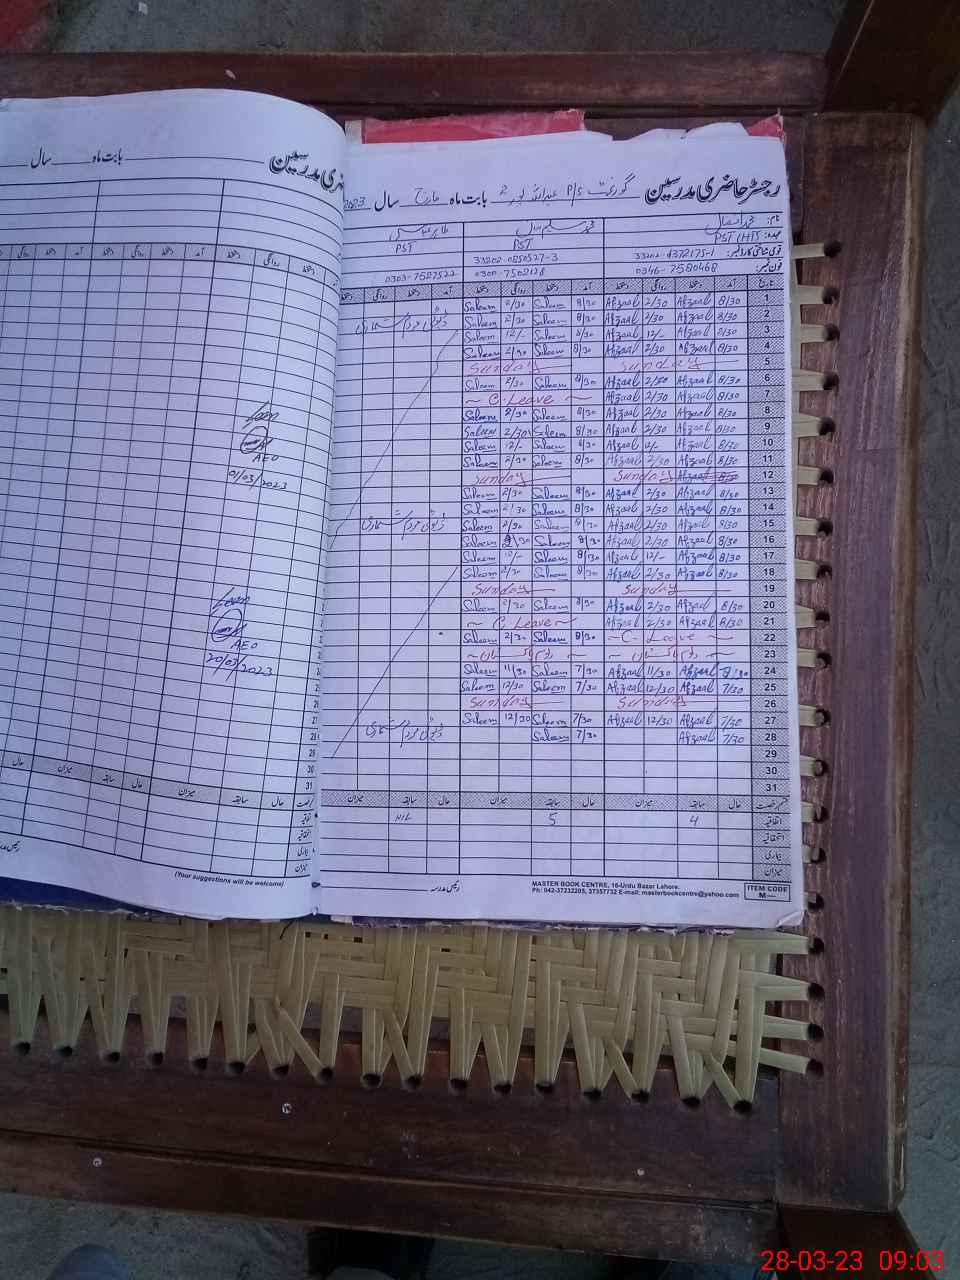 رجسٹر حاضری مدرسین
بابت ماہ سال
رجسٹر حاضری مدرسین گورنمنٹ P/s عبداللہ پور 2 بابت ماہ مارچ سال 2023
نام: محمد افضال محمد سلیم طاہر عباس
عہدہ: PST (HT) PST PST
قومی شناختی کارڈ نمبر: 33202-8372175-1 33202-0850527-3
فون نمبر: 0346-7580468 0300-7502128 0303-7587522
تاریخ آمد دستخط روانگی دستخط آمد دستخط روانگی دستخط آمد دستخط روانگی دستخط
1 8/30 Afzaal 2/30 Afzaal 8/30 Saleem 2/30 Saleem
2 8/30 Afzaal 2/30 Afzaal 8/30 Saleem 2/30 Saleem
3 8/30 Afzaal 12/- Afzaal 8/30 Saleem 12/- Saleem
4 8/30 Afzaal 2/30 Afzaal 8/30 Saleem 2/30 Saleem
5 Sunday Sunday
6 8/30 Afzaal 2/30 Afzaal 8/30 Saleem 2/30 Saleem
7 8/30 Afzaal 2/30 Afzaal ~ C. Leave ~
8 8/30 Afzaal 2/30 Afzaal 8/30 Saleem 2/30 Saleem
9 8/30 Afzaal 2/30 Afzaal 8/30 Saleem 2/30 Saleem
10 8/30 Afzaal 12/- Afzaal 8/30 Saleem 12/- Saleem
11 8/30 Afzaal 2/30 Afzaal 8/30 Saleem 2/30 Saleem
12 Sunday Sunday
13 8/30 Afzaal 2/30 Afzaal 8/30 Saleem 2/30 Saleem
14 8/30 Afzaal 2/30 Afzaal 8/30 Saleem 2/30 Saleem
15 8/30 Afzaal 2/30 Afzaal 8/30 Saleem 2/30 Saleem
16 8/30 Afzaal 2/30 Afzaal 8/30 Saleem 2/30 Saleem
17 8/30 Afzaal 12/- Afzaal 8/30 Saleem 12/- Saleem
18 8/30 Afzaal 2/30 Afzaal 8/30 Saleem 2/30 Saleem
19 Sunday Sunday
20 8/30 Afzaal 2/30 Afzaal 8/30 Saleem 2/30 Saleem
21 8/30 Afzaal 2/30 Afzaal ~ C. Leave ~
22 ~ C. Leave ~ 8/30 Saleem 2/30 Saleem
23 ~ یوم پاکستان ~ ~ یوم پاکستان ~
24 Afzaal 11/30 Afzaal 7/30 Saleem 11/30 Saleem
25 7/30 Afzaal 12/30 Afzaal 7/30 Saleem 12/30 Saleem
26 Sunday Sunday
27 7/30 Afzaal 12/30 Afzaal 7/30 Saleem 12/30 Saleem
28 7/30 Afzaal 7/30 Saleem
29
30
31
ڈیوٹی مردم شماری
ڈیوٹی مردم شماری
ڈیوٹی مردم شماری
قسم رخصت حال سابقہ میزان حال سابقہ میزان حال سابقہ میزان
اتفاقیہ 4 5 NIL
استحقاقیہ
بیماری
میزان
رئیس مدرسہ
MASTER BOOK CENTRE, 16-Urdu Bazar Lahore.
Ph: 042-37232205, 37357732 E-mail: masterbookcentre@yahoo.com
ITEM CODE
M—
AEO
01/03/2023
AEO
20/03/2023
(Your suggestions will be welcome)
28-03-23 09:03